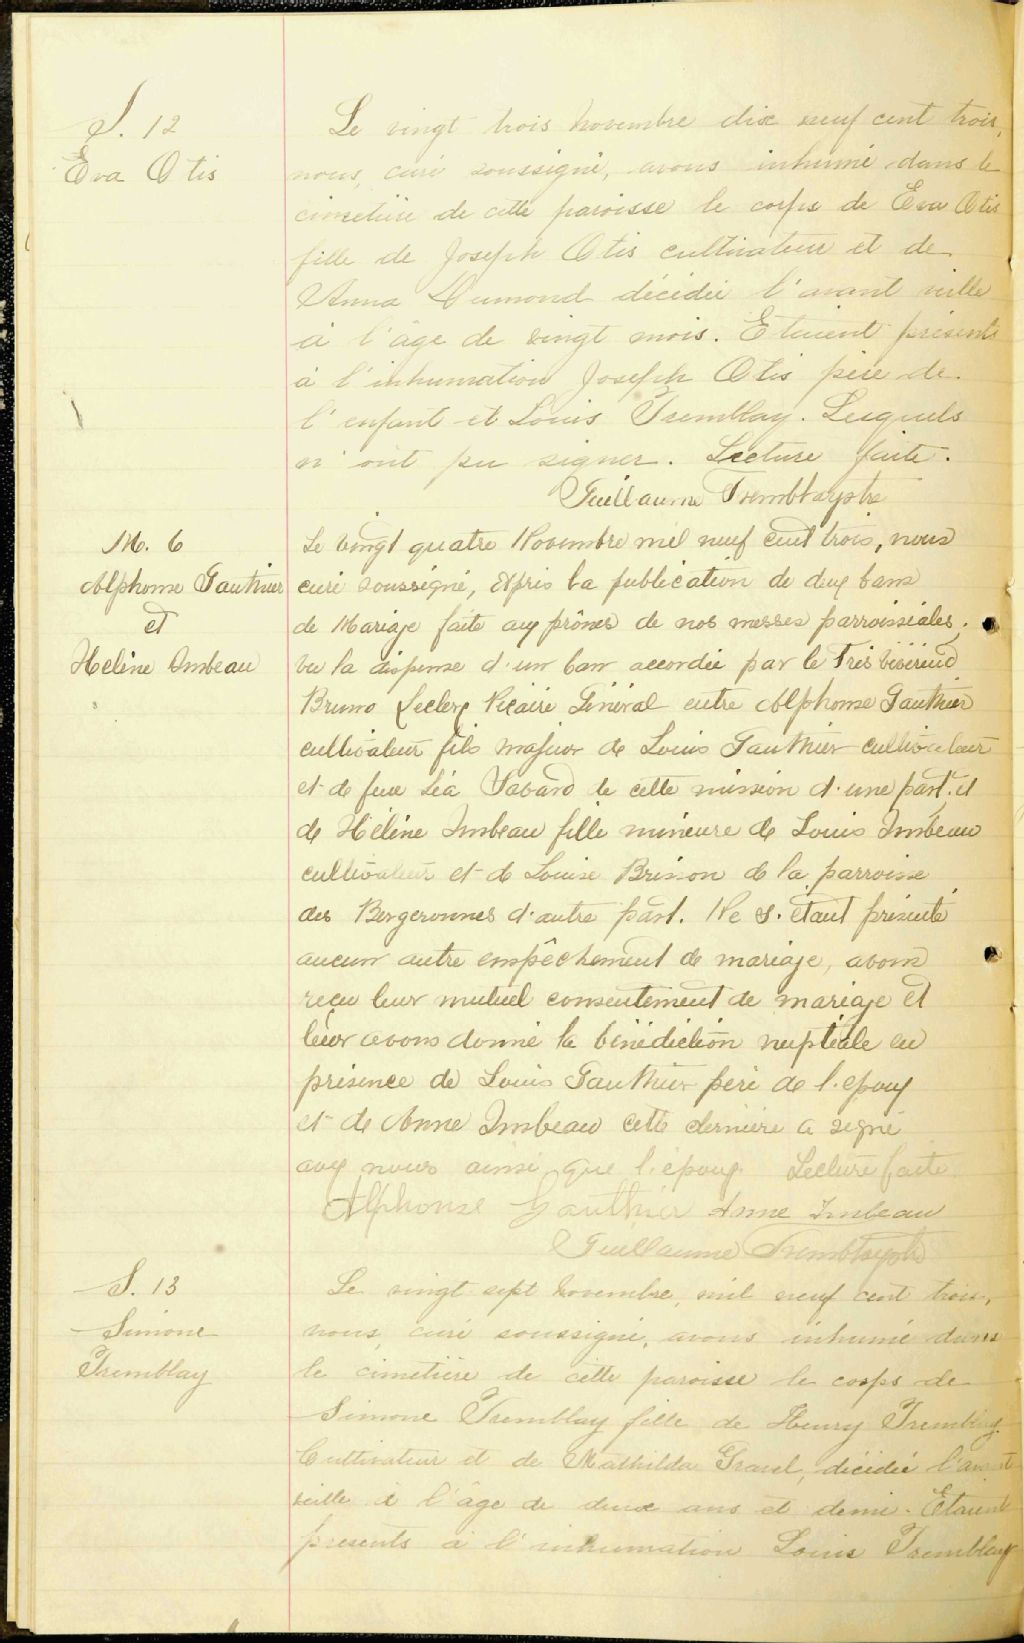 S. 12
Eva Otis
Le vingt trois novembre dix neuf cent trois,
nous, curé soussigné, avons inhumé dans le
cimetière de cette paroisse le corps de Eva Otis
fille de Joseph Otis cultivateur et de
Anna Dumond décédée l'avant veille
à l'âge de vingt mois. Etaient présents
à l'inhumation Joseph Otis père de
l'enfant et Louis Tremblay. Lesquels
n'ont pu signer. Lecture faite.
Guillaume Tremblay ptre
M. 6
Alphonse Gauthier
et
Hélène Imbeau
Le vingt quatre Novembre mil neuf cent trois, nous
curé soussigné, Après la publication de deux bans
de Mariage faite aux prônes de nos messes parroissiales,
vu la dispense d'un ban accordée par le Très révérend
Bruno Leclerc Vicaire Général entre Alphonse Gauthier
cultivateur fils majeur de Louis Gauthier cultivateur
et de feue Léa Savard de cette mission d'une part, et
de Hélène Imbeau fille mineure de Louis Imbeau
cultivateur et de Louise Brisson de la parroisse
des Bergeronnes d'autre part. Ne s'étant présenté
aucun autre empêchement de mariage, avons
reçu leur mutuel consentement de mariage et
leur avons donné la bénédiction nuptiale en
présence de Louis Gauthier père de l'epoux
et de Anne Imbeau cette dernière a signé
avec nous ainsi que l'époux. Lecture faite
Alphonse Gauthier Anne Imbeau
Guillaume Tremblay ptre
S. 13
Simone
Tremblay
Le vingt sept novembre, mil neuf cent trois,
nous, curé soussigné, avons inhumé dans
le cimetière de cette paroisse le corps de
Simone Tremblay fille de Henry Tremblay
Cultivateur et de Mathilda Gravel, décédée l'avant
veille à l'âge de deux ans et demi. Etaient
présents à l'inhumation Louis Tremblay